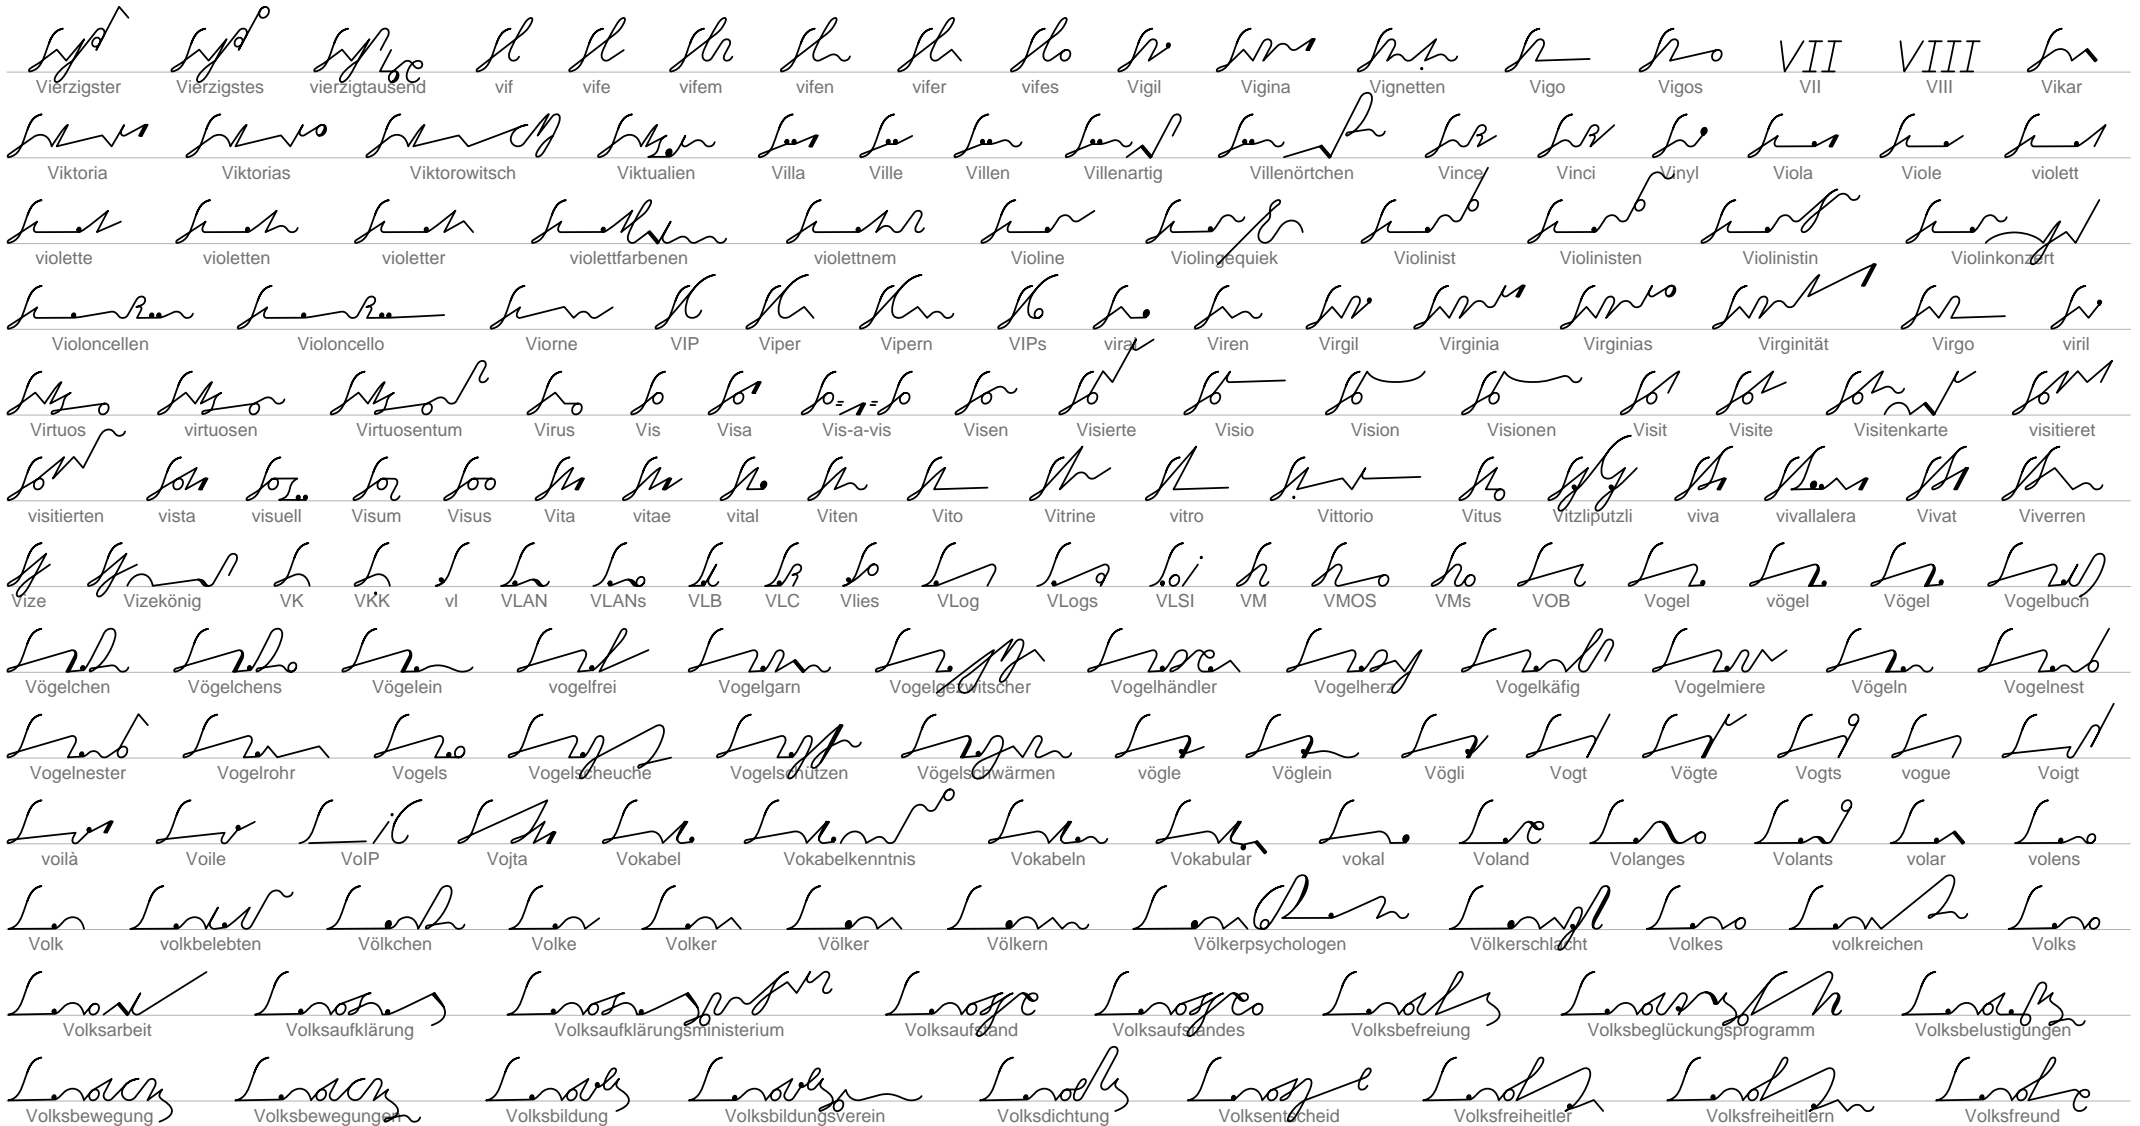 Vierzigster Vierzigstes vierzigtausend vif vife vifem vifen vifer vifes Vigil Vigina Vignetten Vigo Vigos VII VIII Vikar
Viktoria Viktorias Viktorowitsch Viktualien Villa Ville Villen Villenartig Villenörtchen Vince Vinci Vinyl Viola Viole violett
violette violetten violetter violettfarbenen violettnem Violine Violingequiek Violinist Violinisten Violinistin Violinkonzert
Violoncellen Violoncello Viorne VIP Viper Vipern VIPs viral Viren Virgil Virginia Virginias Virginität Virgo viril
Virtuos virtuosen Virtuosentum Virus Vis Visa Vis-a-vis Visen Visierte Visio Vision Visionen Visit Visite Visitenkarte visitieret
visitierten vista visuell Visum Visus Vita vitae vital Viten Vito Vitrine vitro Vittorio Vitus Vitzliputzli viva vivallalera Vivat Viverren
Vize Vizekönig VK VKK vl VLAN VLANs VLB VLC Vlies VLog VLogs VLSI VM VMOS VMs VOB Vogel vögel Vögel Vogelbuch
Vögelchen Vögelchens Vögelein vogelfrei Vogelgarn Vogelgezwitscher Vogelhändler Vogelherz Vogelkäfig Vogelmiere Vögeln Vogelnest
Vogelnester Vogelrohr Vogels Vogelscheuche Vogelschützen Vögelschwärmen vögle Vöglein Vögli Vogt Vögte Vogts vogue Voigt
voilà Voile VoIP Vojta Vokabel Vokabelkenntnis Vokabeln Vokabular vokal Voland Volanges Volants volar volens
Volk volkbelebten Völkchen Volke Volker Völker Völkern Völkerpsychologen Völkerschlacht Volkes volkreichen Volks
Volksarbeit Volksaufklärung Volksaufklärungsministerium Volksaufstand Volksaufstandes Volksbefreiung Volksbeglückungsprogramm Volksbelustigungen
Volksbewegung Volksbewegungen Volksbildung Volksbildungsverein Volksdichtung Volksentscheid Volksfreiheitler Volksfreiheitlern Volksfreund